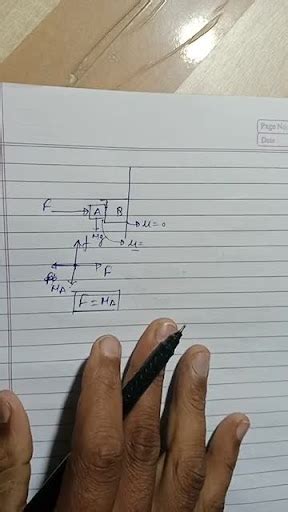 Page No.
Date
F A B μ=0
Mg
f μ=
F
N_A
F = N_A